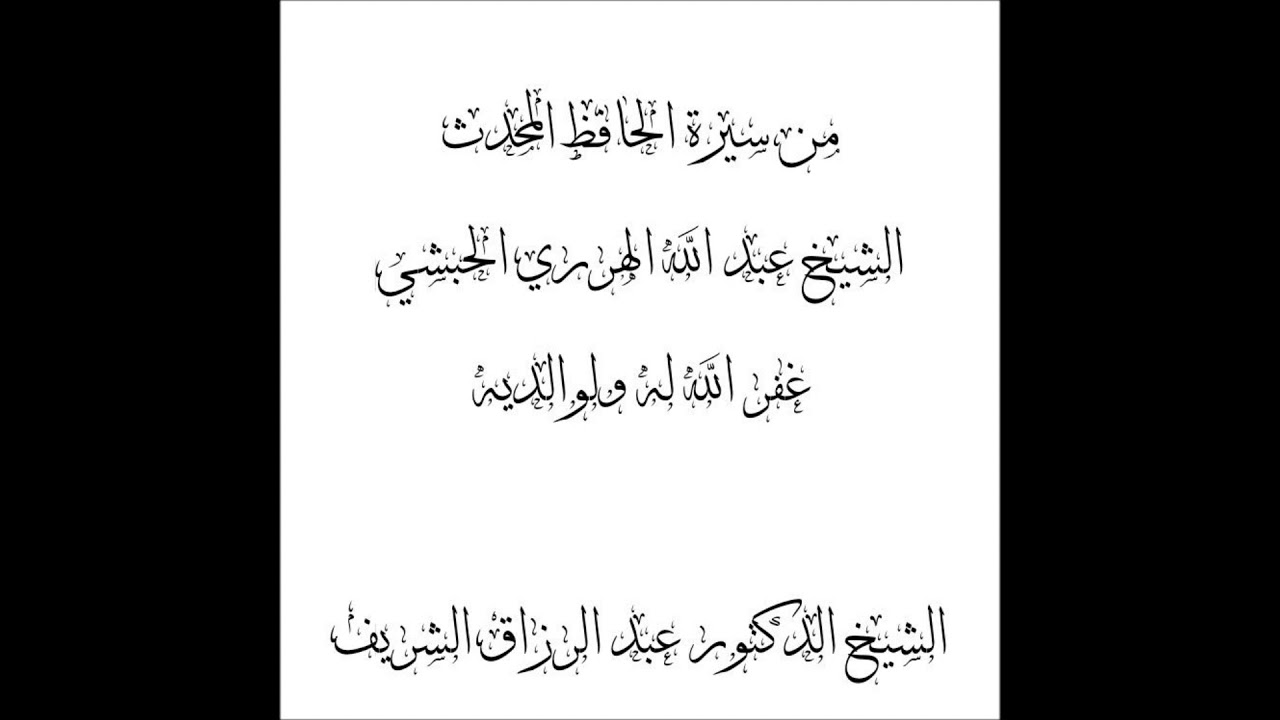 من سيرة الحافظ المحدث
الشيخ عبد الله الهرري الحبشي
غفر الله له ولوالديه
الشيخ الدكتور عبد الرزاق الشريف